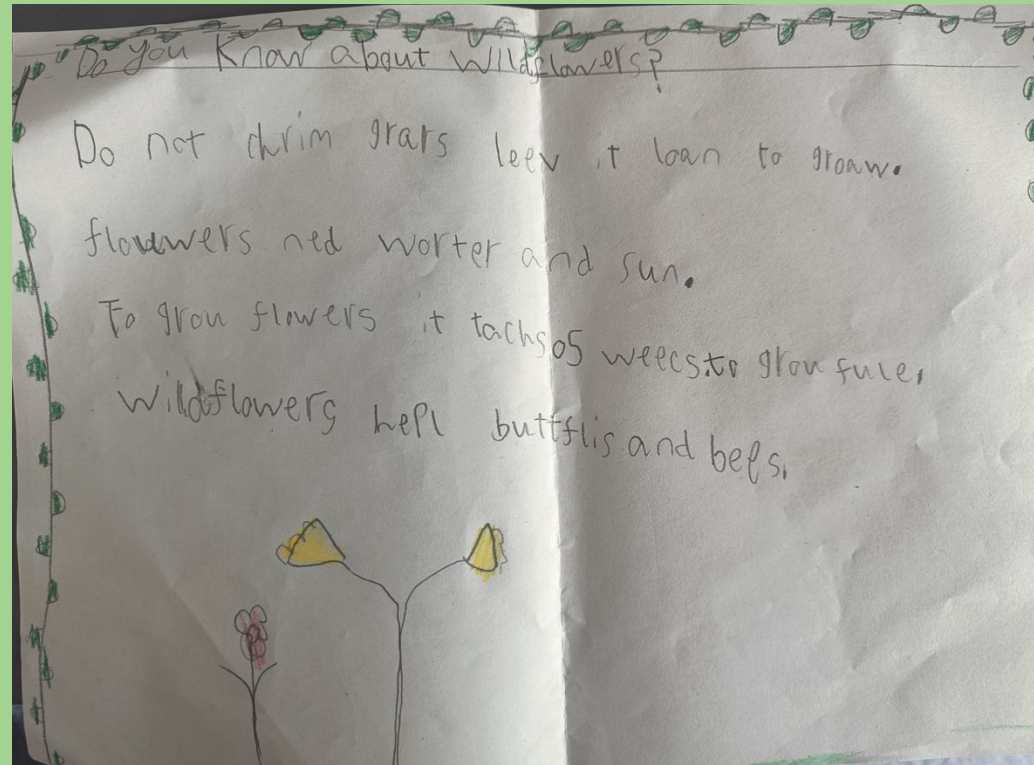 Do you Know about Wildflowers?
Do not chrim grars leev it loan to groaw.
flouwers ned worter and sun.
To grou flowers it tachs 05 weecs to grou fule,
Wildflowers hepl buttflis and bees.